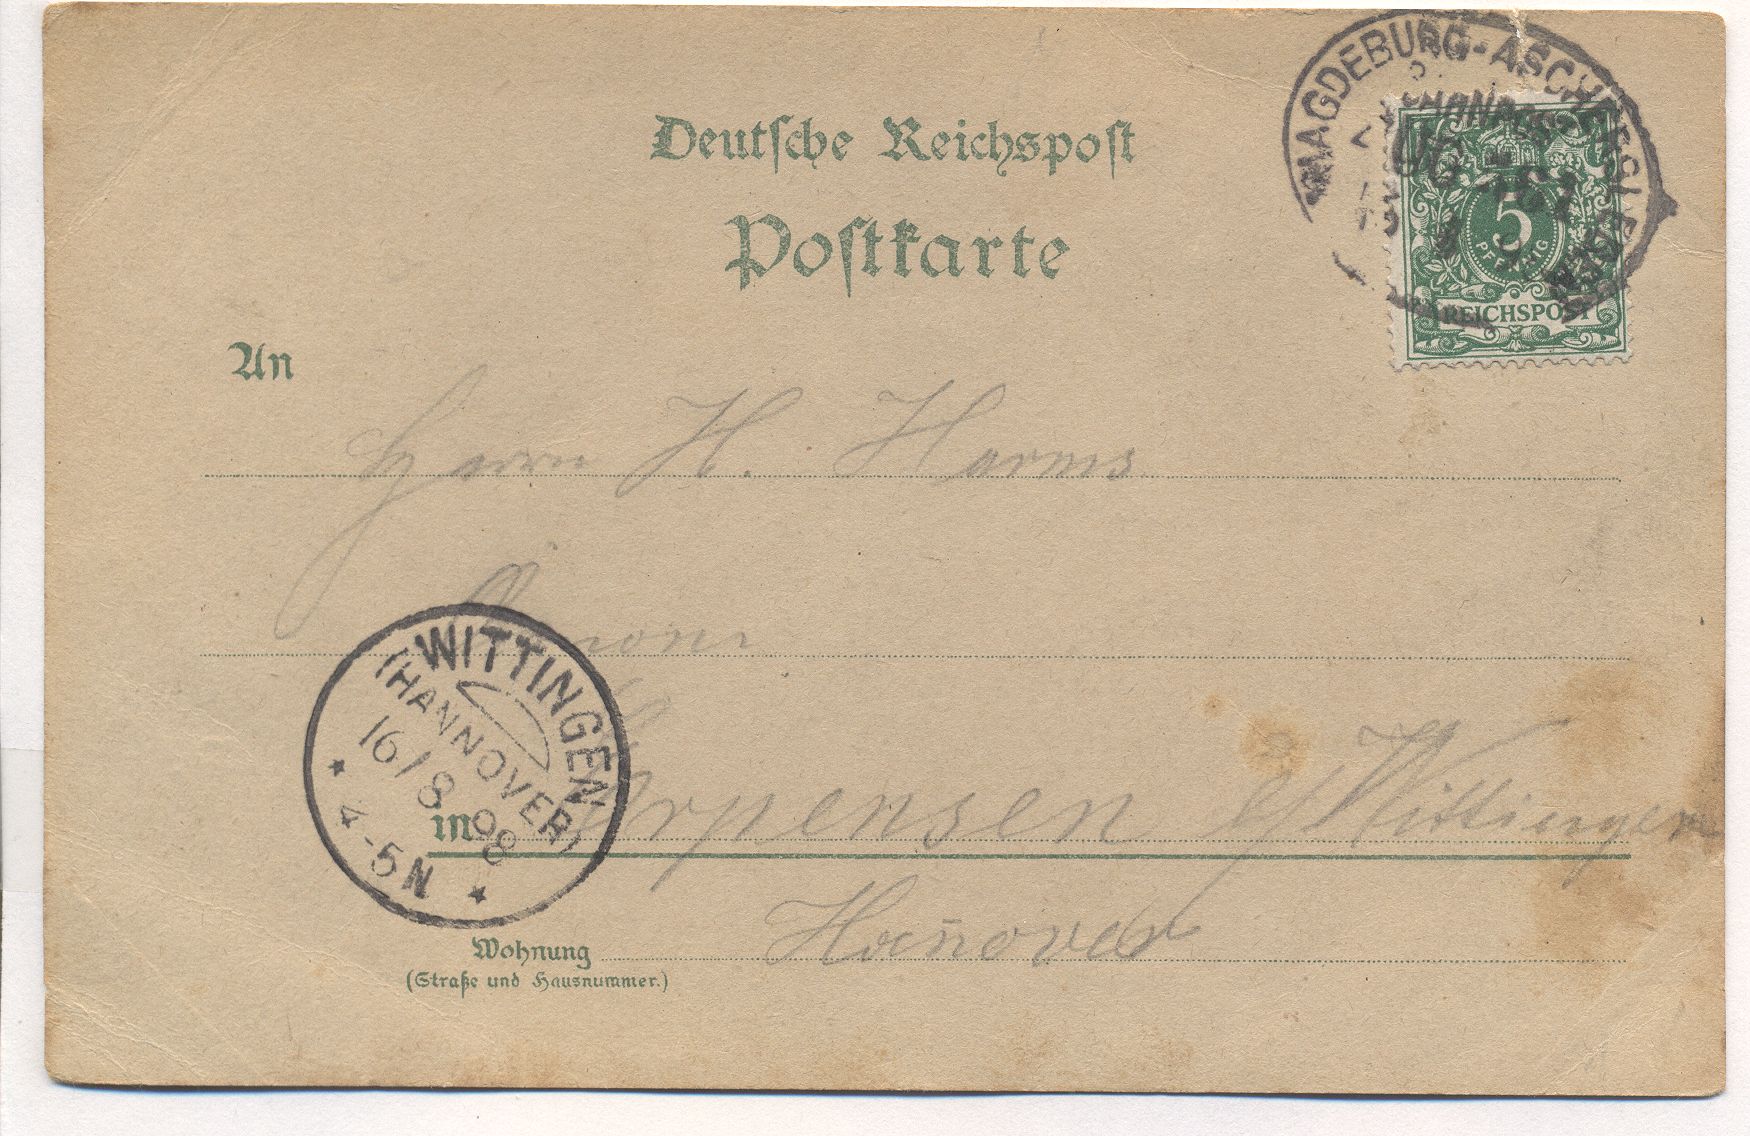 Deutsche Reichspost
Postkarte
MAGDEBURG-ASCHERSLEBEN
BAHNPOST
5
PFENNIG
REICHSPOST
An
Herrn H. Harms
WITTINGEN
(HANNOVER)
16/8 98
4-5N
in Erpensen b/Wittingen
Hannover
Wohnung
(Straße und Hausnummer.)